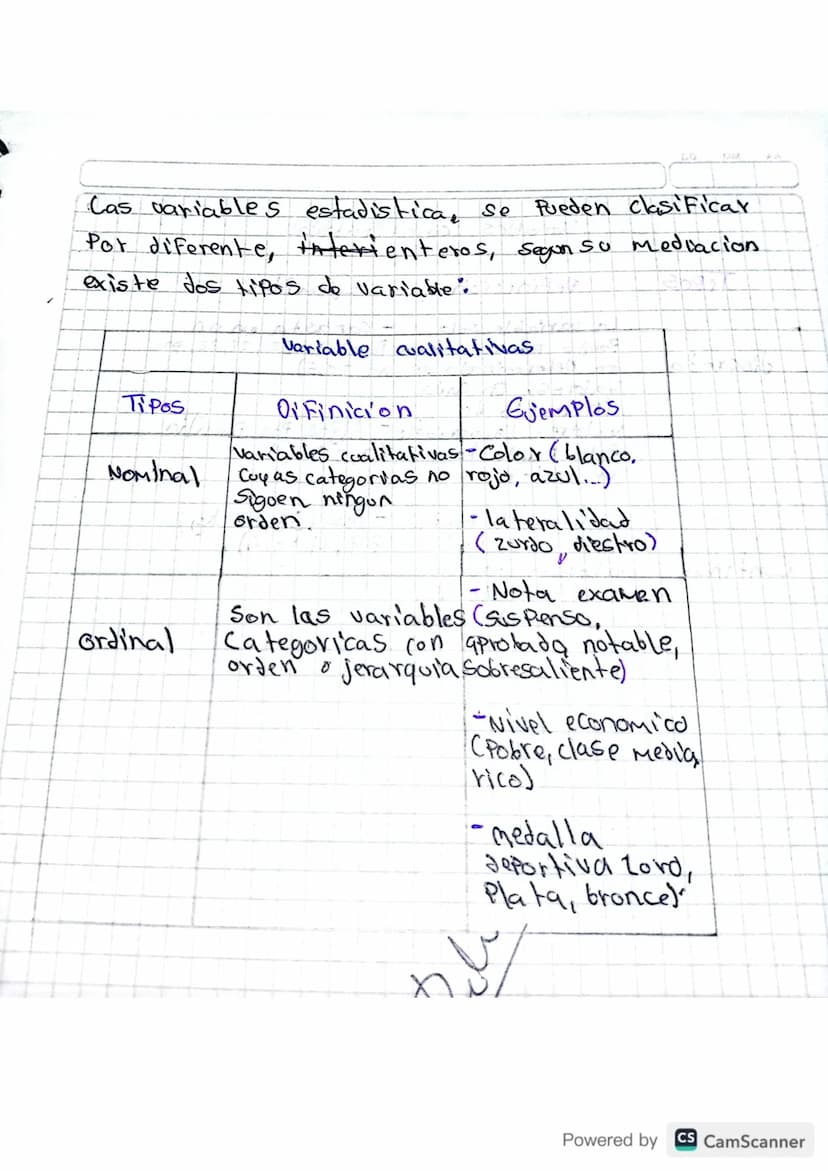 Las variables estadistica, se Pueden clasificar
Por diferente, interi enteros, segun su medicacion
existe dos tipos de variable:
Variable cualitativas
Tipos
Difinicion
Ejemplos
Nominal
Variables cualitativas
cuyas categorias no
siguen ningun
orden.
- Color (blanco,
rojo, azul...)
- lateralidad
(zurdo, diestro)
ordinal
Son las variables
Categoricas con
orden o jerarquia
- Nota examen
(suspenso,
aprobado, notable,
sobresaliente)
- Nivel economico
(Pobre, clase media,
rico)
- medalla
deportiva (oro,
Plata, bronce)
Powered by CS CamScanner